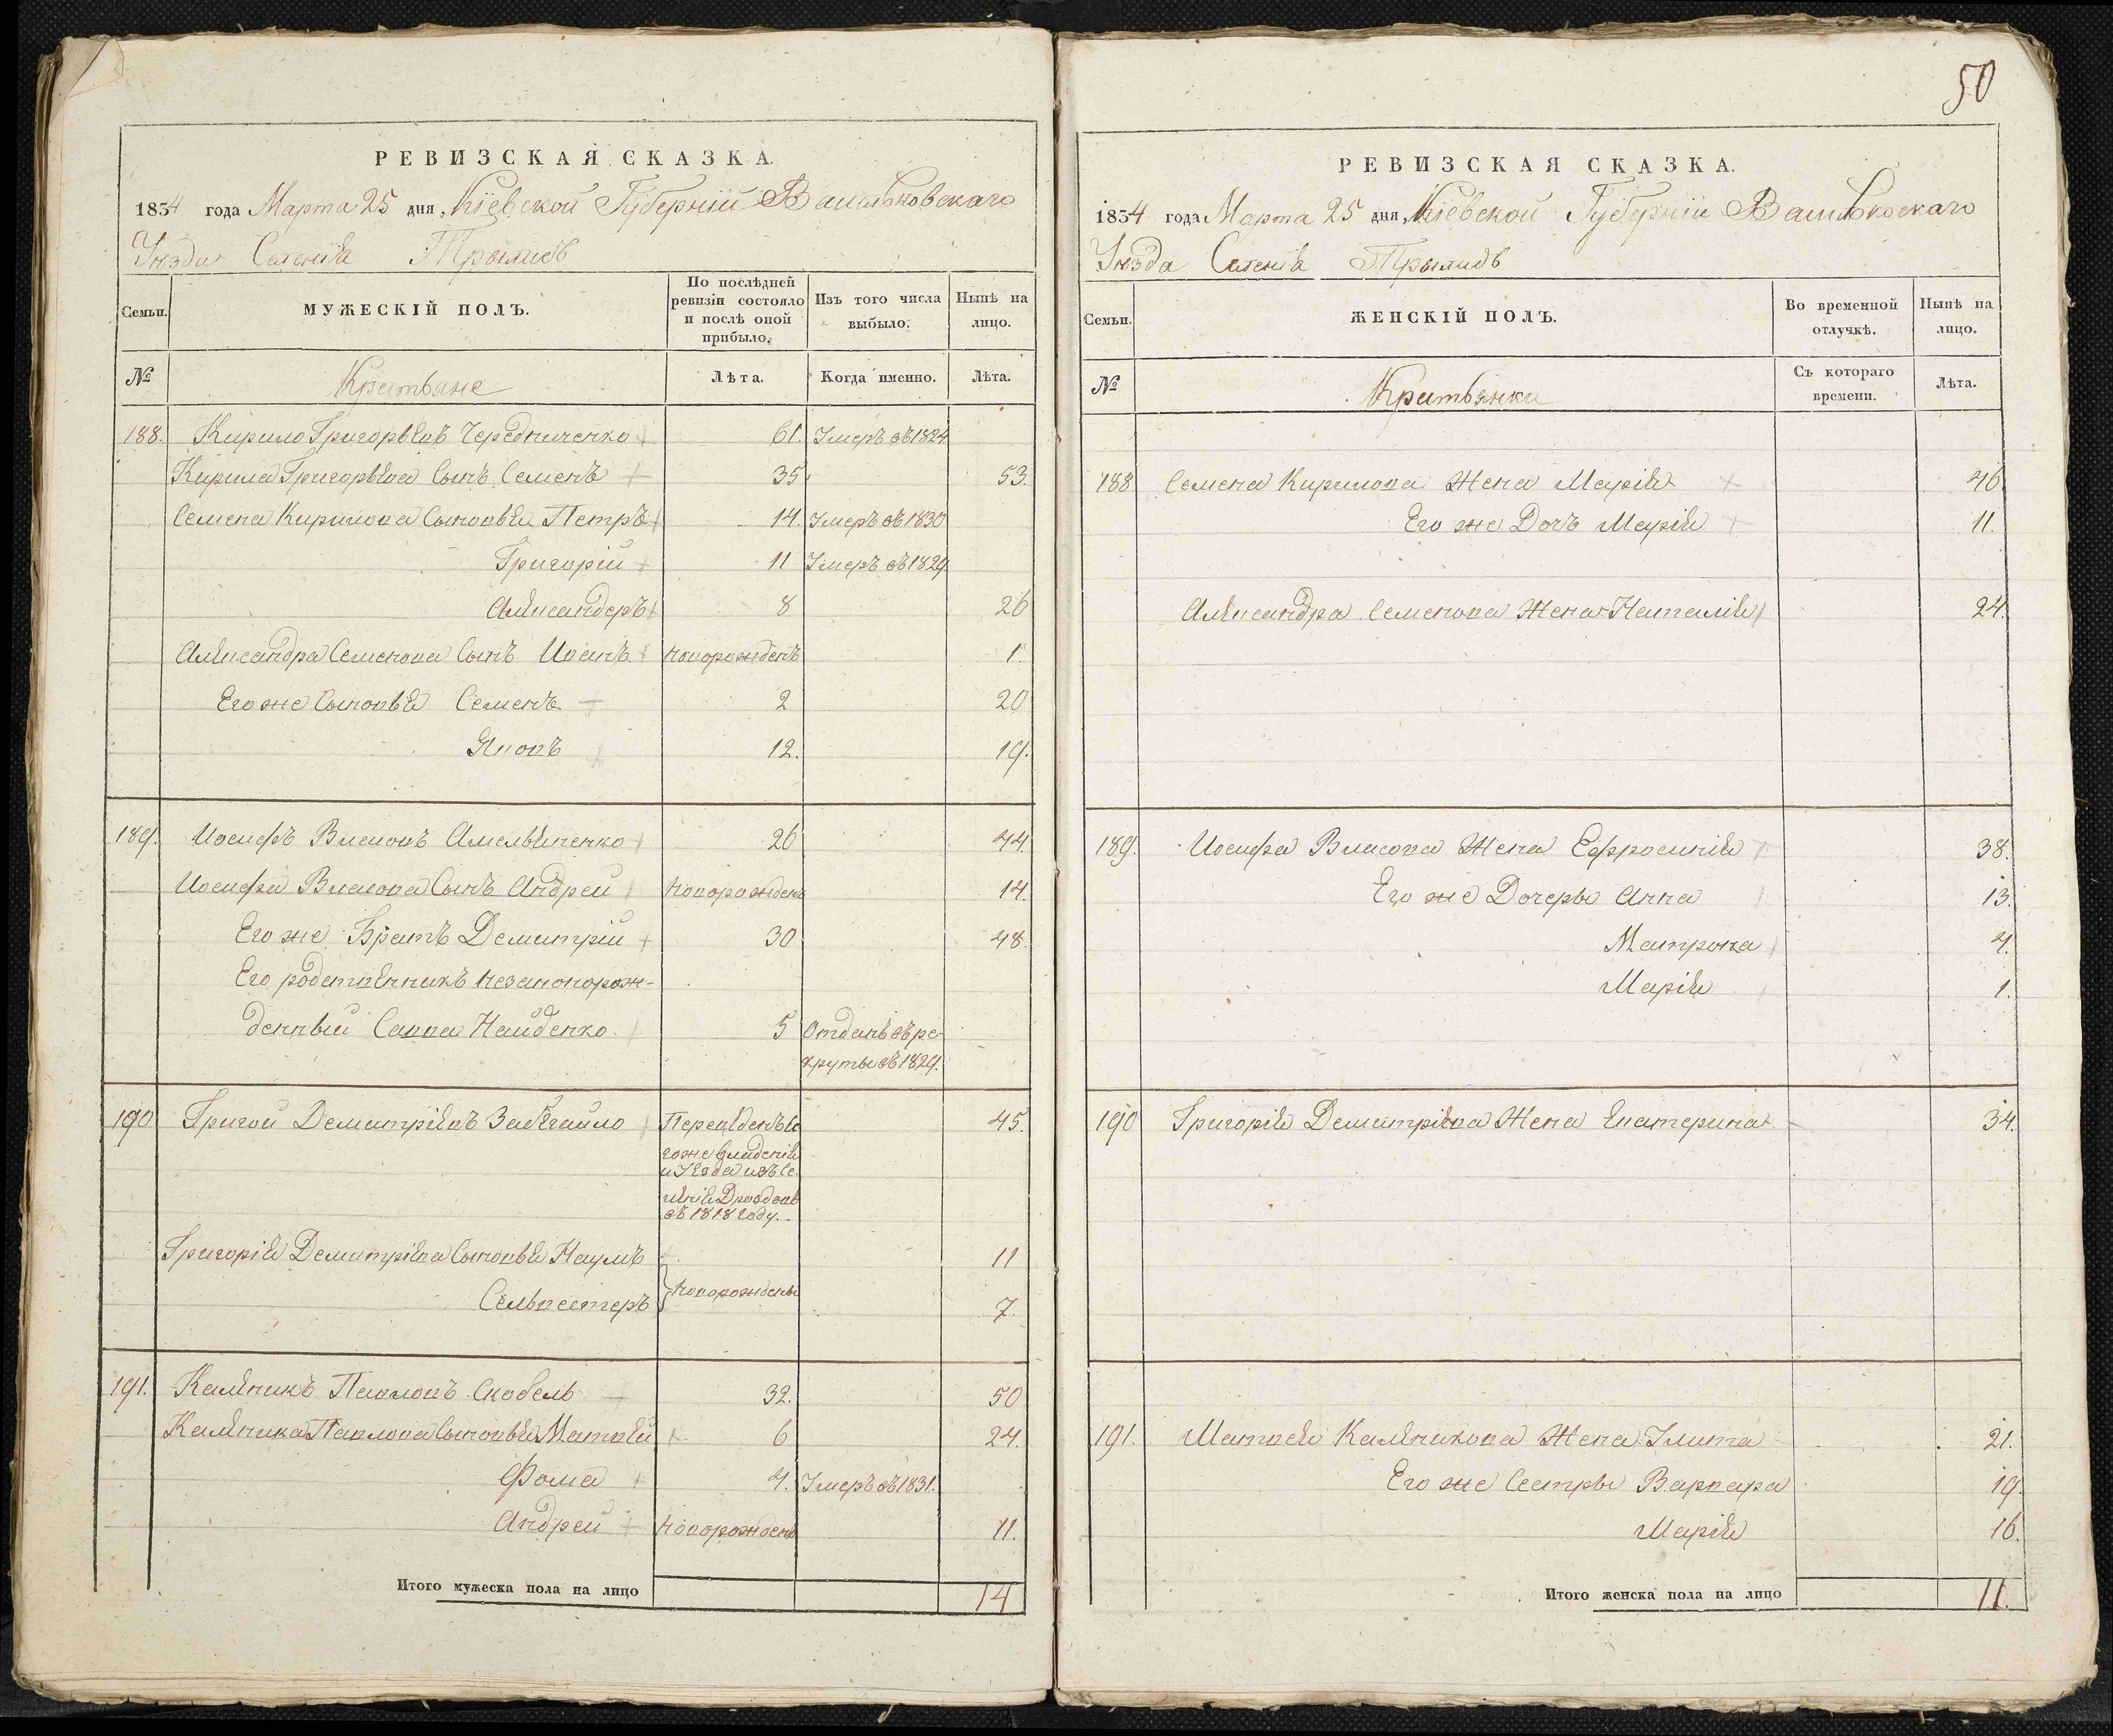 50
РЕВИЗСКАЯ СКАЗКА.
1834 года Марта 25 дня, Кіевской Губерніи Васильковскаго
Уѣзда Селенія Трылисъ
Семьи.
МУЖЕСКІЙ ПОЛЪ.
По послѣдней ревизіи состояло и послѣ оной прибыло.
Изъ того числа выбыло.
Нынѣ на лицо.
№
Крестьяне
Лѣта.
Когда именно.
Лѣта.
188. Кирило Григорьевъ Чередниченко 61. Умеръ въ 1824
Кирила Григорьева Сынъ Семенъ 35 53.
Семена Кирилова Сыновья Петръ 14. Умеръ въ 1830
Григорій 11 Умеръ въ 1829
Александеръ 8 26
Александра Семенова Сынъ Иванъ новорожденъ 1.
Его же Сыновья Семенъ 2 20
Яковъ 12. 19.
189. Иосифъ Власовъ Амельяненко 26 44.
Иосифа Власова Сынъ Андрей новорожденъ 14.
Его же Братъ Демитрій 30 48.
Его родственникъ незаконорож-
денный Савва Найденко 5 Отданъ въ ре-
круты въ 1829.
190 Григой Демитріевъ Забѣгайло Переведенъ 45.
гоже владенія
и Уезда изъ Се
ленія Дроздовъ
въ 1818 году.
Григорія Демитріева Сыновья Наумъ 11
Сельвестеръ новорождены 7.
191. Каленикъ Павловъ Скобель 32. 50
Каленика Павлова Сыновья Матвей 6 24.
Фома 4. Умеръ въ 1831.
Андрей новорожденъ 11.
Итого мужеска пола на лицо 14
РЕВИЗСКАЯ СКАЗКА.
1834 года Марта 25 дня, Кіевской Губерніи Васильковскаго
Уѣзда Селенія Трылисъ
Семьи.
ЖЕНСКІЙ ПОЛЪ.
Во временной отлучкѣ.
Нынѣ на лицо.
№
Крестьянки
Съ котораго времени.
Лѣта.
188 Семена Кирилова Жена Марія 46
Его же Дочъ Марія 11.
Александра Семенова Жена Наталія 24.
189. Иосифа Власова Жена Ефросинія 38.
Его же Дочеры Анна 13.
Матрона 4.
Марія 1.
190 Григорія Демитріева Жена Екатерина 34.
191. Матвея Каленикова Жена Улита 21.
Его же Сестры Варвара 19.
Марія 16.
Итого женска пола на лицо 11.